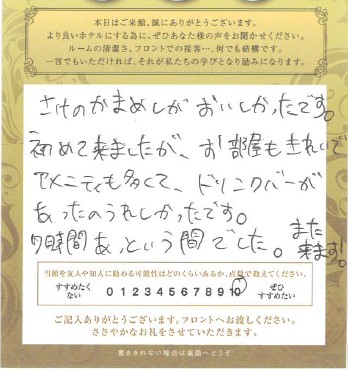 本日はご来館、誠にありがとうございます。
より良いホテルにする為に、ぜひあなた様の声をお聞かせください。
ルームの清潔さ、フロントでの接客…、何でも結構です。
一言でもいただければ、それが私たちの学びとなり励みになります。
さけのかまめしがおいしかったです。
初めて来ましたが、お部屋もきれいで
アメニティも多くて、ドリンクバーが
あったのうれしかったです。
7時間あっという間でした。
また
来ます!。
当館を友人や知人に勧める可能性はどのくらいあるか、点数で教えてください。
すすめたく
ない
0 1 2 3 4 5 6 7 8 9 10
ぜひ
すすめたい
ご記入ありがとうございます。フロントへお渡しください。
ささやかなお礼をさせていただきます。
書ききれない場合は裏面へどうぞ